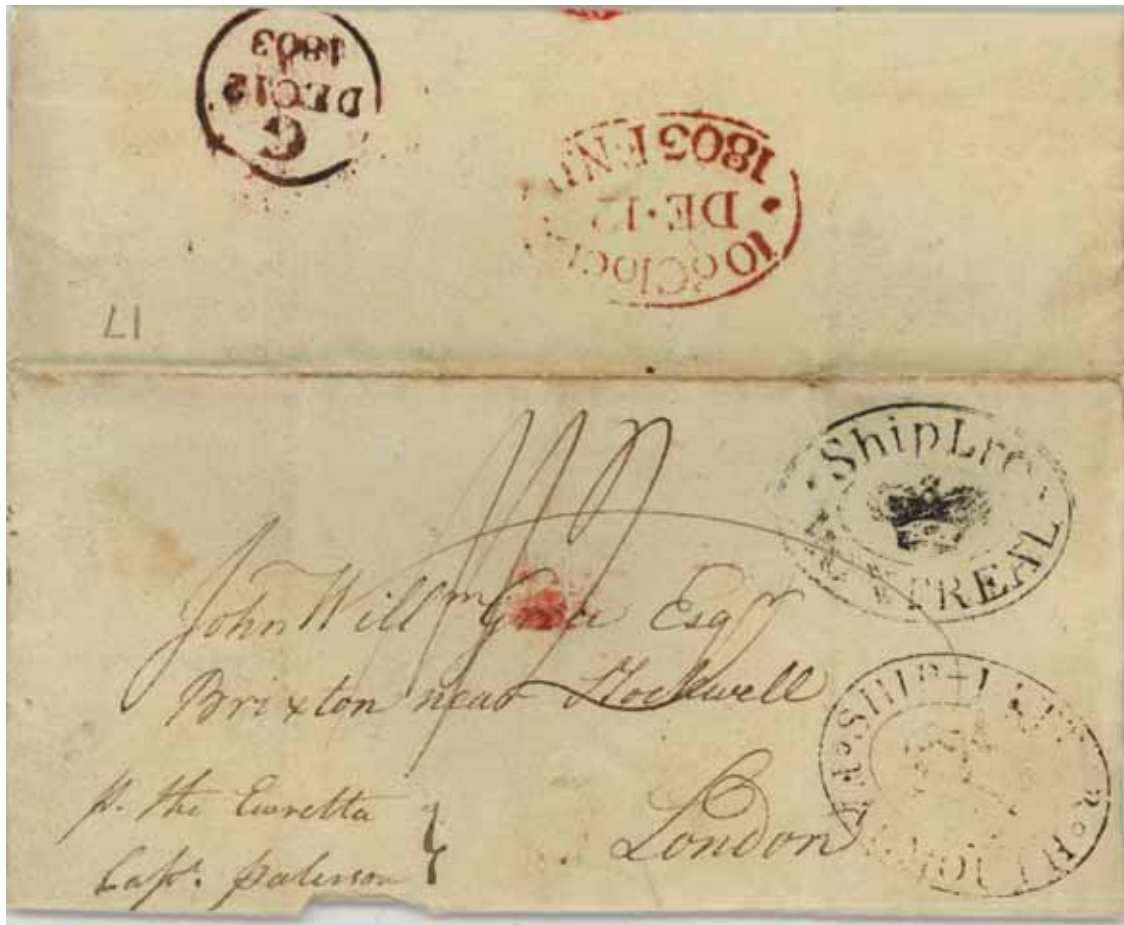 G
DEC 12
1803
10 o'Clock
DE·12
1803 F.N.n
17
Ship Lre
MONTREAL
John Will^m Esq^r
Brixton near Stockwell
London
SHIP-LETTER
PLYMOUTH
p. the Euretta
Capt. Paterson